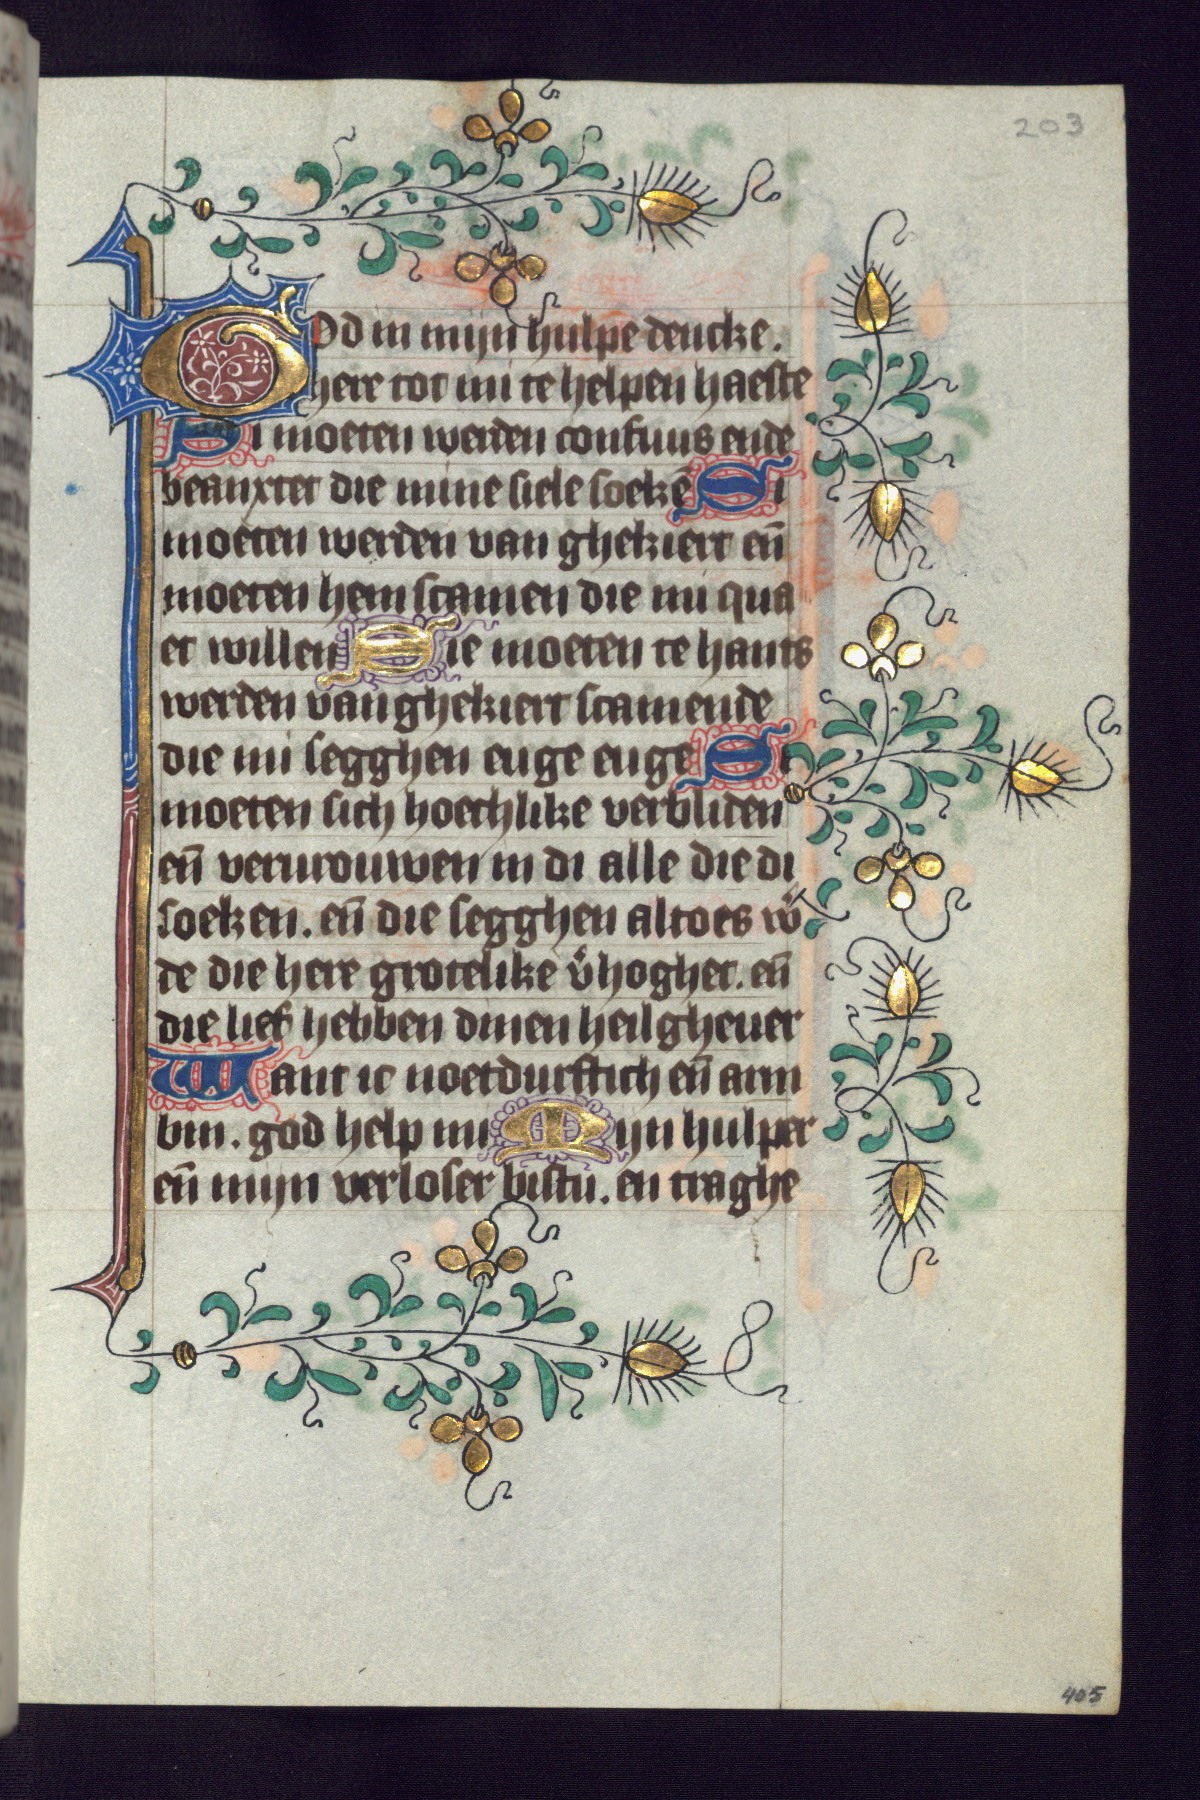 203
God in mijn hulpe dencke.
here tot mi te helpen haeste
Si moeten werden confuus ende
beanxtet die mine siele soekē Si
moeten werden van ghekiert eñ
moeten hem scamen die mi qua
et willen Die moeten te hants
werden van ghekiert scamende
die mi segghen euge euge Si
moeten sich hoechlike verbliden
eñ vervrouwen in di alle die di
soeken. eñ die segghen altoes w̄
de die here grotelike v̄hoghet. eñ
die lief hebben dinen heilgheuer
Want ic noetdurftich eñ arm
bin. god help mi Mijn hulper
eñ mijn verloser bistu. en traghe
405